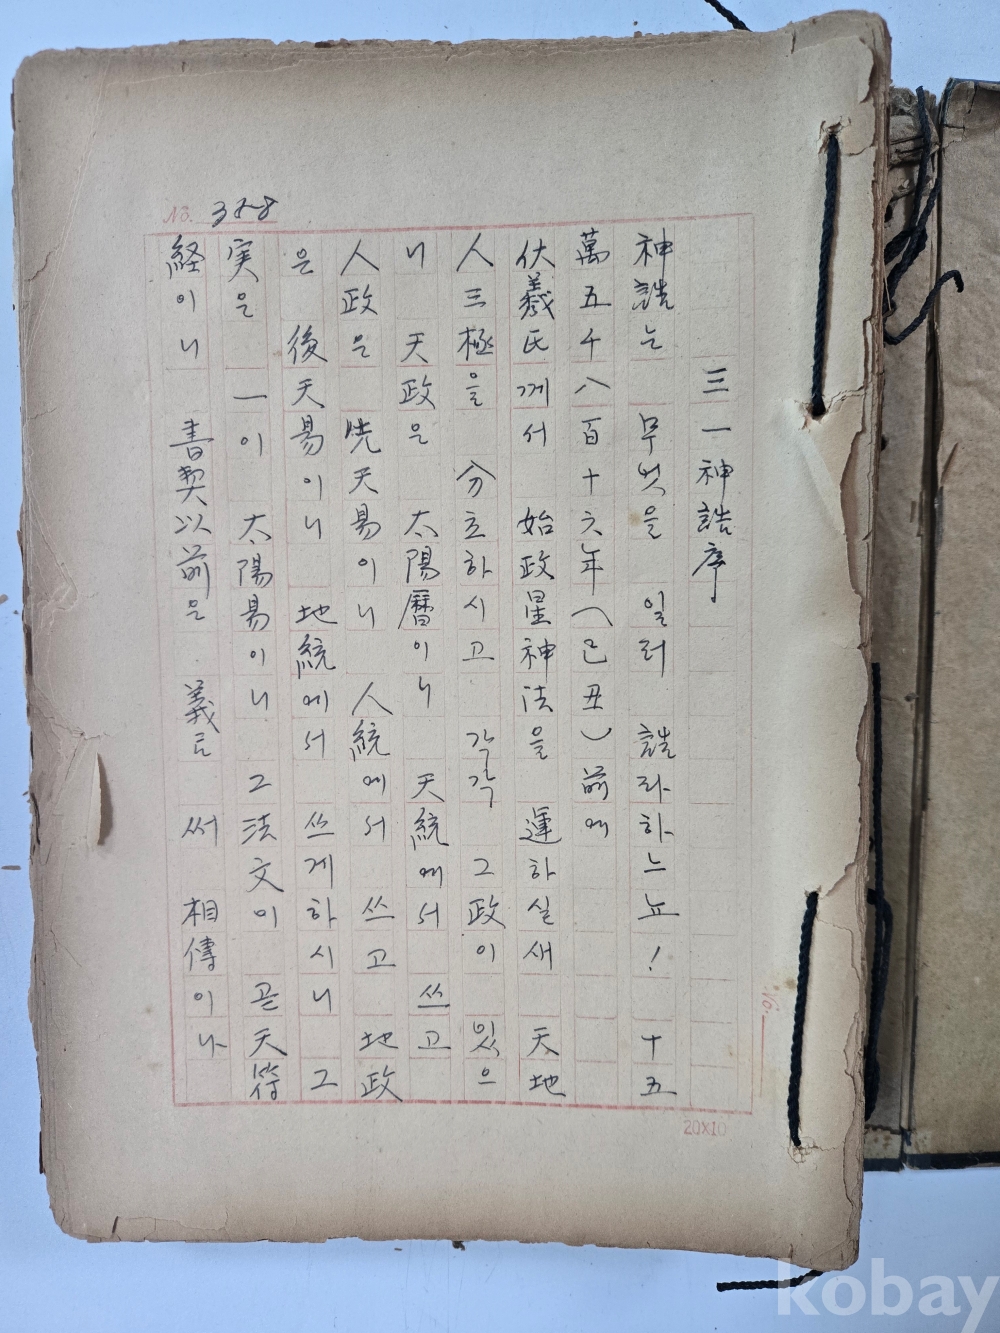 No. 358
三一神誥序
神誥는 무엇을 일러 誥라하느뇨! 十五
萬五千八百十六年(己丑)前에
伏羲氏께서 始政星神法을 運하실새 天地
人三極을 分立하시고 각각 그政이 있으
니 天政은 太陽曆이니 天統에서 쓰고
人政은 先天易이니 人統에서 쓰고 地政
은 後天易이니 地統에서 쓰게하시니 그
実은 一이 太陽易이니 그法文이 곧天符
経이니 書契以前은 義로 써 相傳이나
20X10
kobay